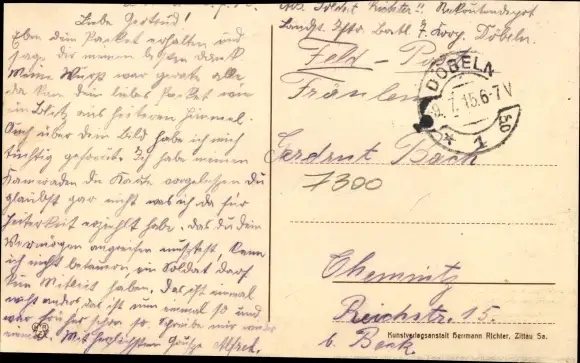 Liebe Gertrud!
Eben dein Packet erhalten und
sage dir meinen besten Dank.
Meine Wurst war gerade alle,
da kam dein liebes Packet wie
ein Blitz aus heiterem Himmel.
Auch über dem Bild habe ich mich
tüchtig gefreut. Ich habe meinen
Kameraden die Karte vorgelesen du
glaubst gar nicht was ich da für
Heiterkeit erziehlt habe, das du dein
Vermögen angreifen mußtest, denn
ich nicht ein Soldat darf
kein Mitleid haben. Das ist einmal
nicht anders das ist nun einmal so und
war früher schon so. Schreibe mir
Mit herzlichsten Grüße Alfred.
Abs. Soldat Richter!! Rekrutendepot
Landst. Inftr. Batl. 7. Korp. Döbeln.
Feld - Post
Fräulein
DÖBELN
9.7.15.6-7V
* 1
50
Gerdrut Back
7300
Chemnitz
Reichstr. 15.
b. Back.
Kunstverlagsanstalt Herrmann Richter, Zittau Sa.